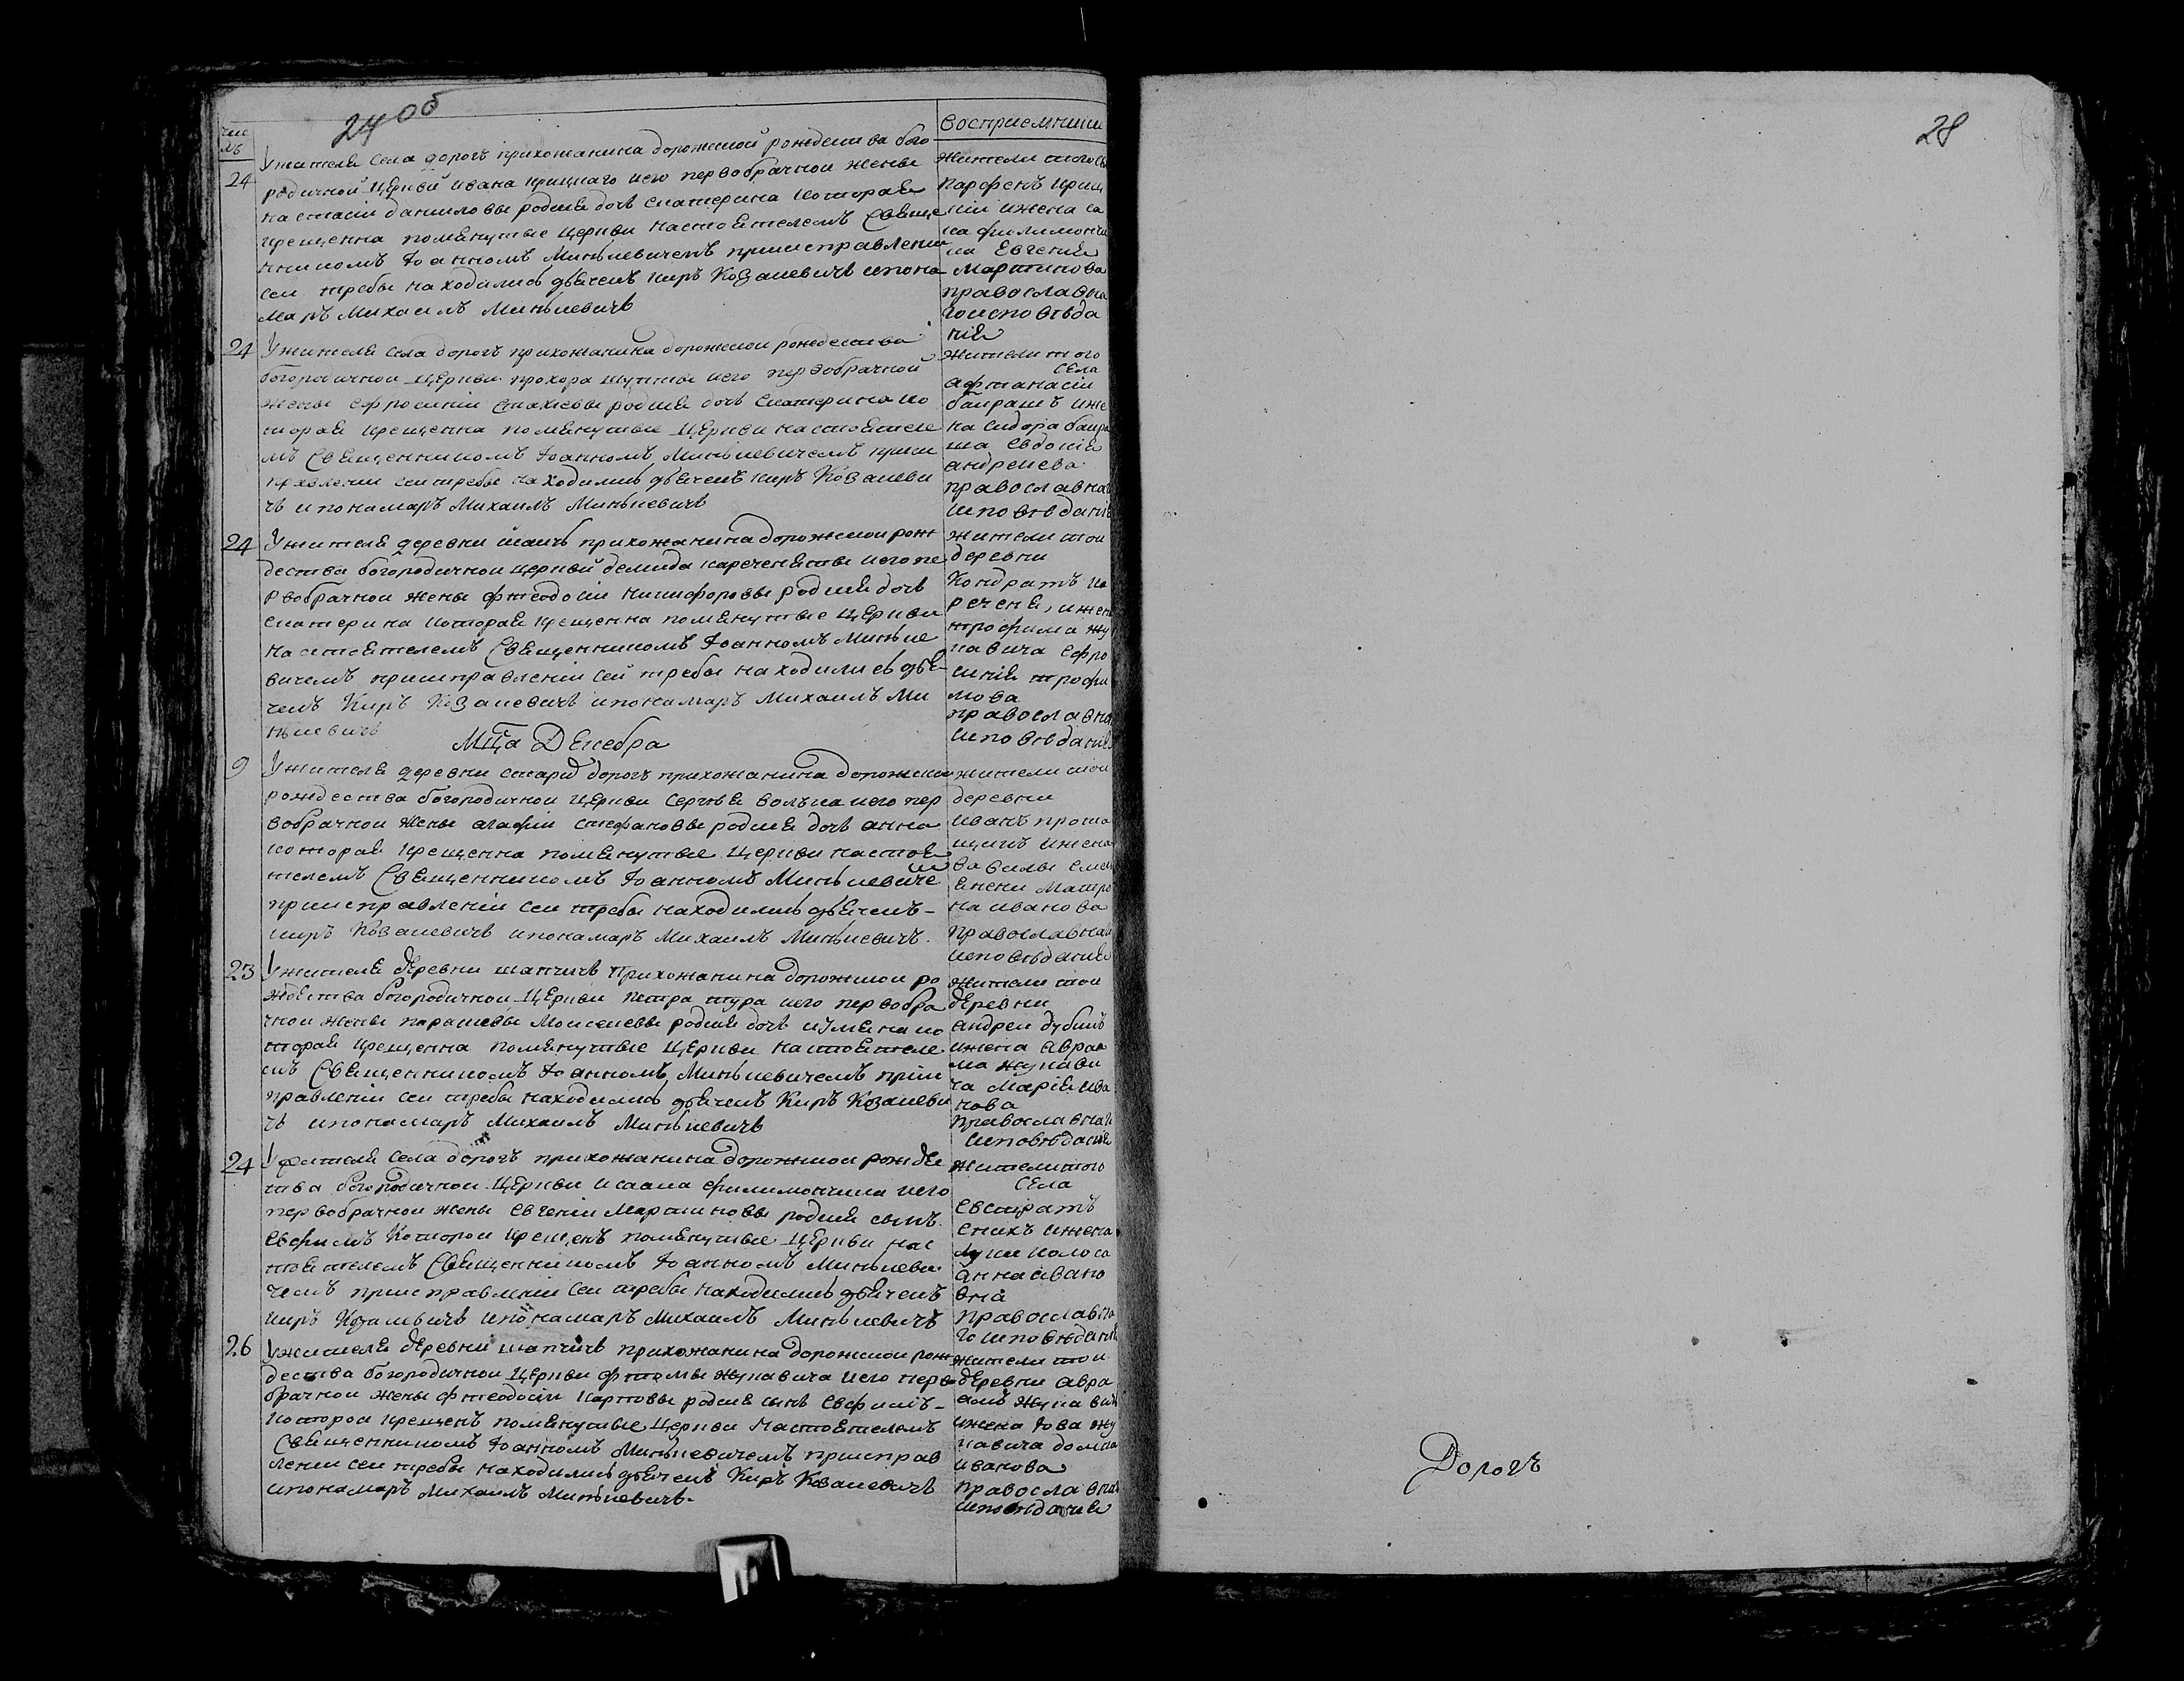 24 об
чис
ла
восприемники
24
Ужителя села дорогъ прихожанина дорожской рождества бого
родичной церкви ивана крицкаго иего первобрачной жены
настасіи даниловы родися дочь екатерина которая
крещенна помянутые церкви настоятелемъ Свяще
нникомъ Іоанномъ Минкевичемъ приисправлении
сеи требы находились дьячекъ киръ Козакевичъ ипоно
маръ Михаилъ Минкевичъ
жители того се
Парфенъ криц
кіи ижена са
ка филимончи
ка Евгения
Мартинова
православна
гоисповѣда
нія
24
Ужителя села дорогъ прихожанина дорожскои рождества
богородичнои церкви прохора иего первобрачной
жены ефросиніи родися дочь Екатерина ко
торая крещенна помянутые церкви настоятеле
мъ Священникомъ Іоанномъ Минкевичемъ приис
правлении сеи требы находились дьячекъ киръ Козакеви
чъ ипономаръ Михаилъ Минкевичъ
жители того
села
афтанасіи
баирашъ иже
на сидора баира
ша Евдокія
андреиева
православнаг
исповѣданія
24
Ужителя деревни прихожанина дорожскои рож
дества богородичнои церкви демида иего пе
рвобрачнои жены фтеодосіи никифоровы родися дочь
екатерина которая крещенна помянутые церкви
настоятелемъ Священникомъ Іоанномъ Минке
вичемъ приисправленіи сеи требы находились дья
чекъ Киръ Козакевичъ ипономаръ Михаилъ Ми
нкевичъ
жители тои
деревни
Кондратъ ка
речения, ижен
трофима жу
кавича ефро
синія трофи
мова
православна
исповѣдания
Мца Декабра
9
Ужителя деревни старыхъ дорогъ прихожанина дорожскои
рождества богородичнои церкви Сергѣя волъка иего пер
вобрачнои жены агафіи стефановы родися дочь анна
которая крещенна помянутые церкви настоя
телемъ Священникомъ Іоанномъ Минкевиче
приисправленіи сеи требы находились дьячекъ -
киръ Козакевичъ ипономаръ Михаилъ Минкевичъ.
жители тои
деревни
иванъ
ижена
Матро
на иванова
православнаг
исповѣдания
23
Ужителя деревни шапчичъ прихожанина дорожскои ро
ждества богородичнои церкви петра тура иего первобра
чнои жены параскевы Моисеевы родися дочь ко
торая крещенна помянутые церкви настоятеле
мъ Священникомъ Іоанномъ Минкевичемъ приис
правленіи сеи требы находились дьячекъ Киръ Козакеви
чъ ипономаръ Михаилъ Минкевичъ
жители тои
деревни
андреи дубикъ
ижена авраа
ма жукави
ча Марія ива
нова
православнаг
исповѣдания
24
Ужителя села дорогъ прихожанина дорожскои рождес
тва богородичнои церкви исаака филимончика иего
первобрачнои жены Евгеніи Мартиновы родися сынъ
Евфимъ Которои крещенъ помянутые церкви нас
тоятелемъ Священникомъ Іоанномъ Минкеви
чемъ приисправленіи сеи требы находились дьячекъ
киръ Козакевичъ ипономаръ Михаилъ Минкевичъ
жители того
села
Евстратъ
ижена
луки
анна ивано
вна
православна
го исповѣдания
26
Ужителя деревни шапчичъ прихожанина дорожскои рож
дества богородичнои церкви фтомы жукавича иего перво
брачнои жены фтеодосіи карповы родися сынъ Евфимъ-
которои крещенъ помянутые церкви Настоятелемъ
Священникомъ Іоанномъ Минкевичемъ приисправ
лении сеи требы находились дьячекъ Киръ Козакевичъ
ипономаръ Михаилъ Минкевичъ.
жители тои
деревни авра
амъ жукавич
ижена Іова жу
кавича домна
иванова
православнаг
исповѣдания
28
Дорогъ